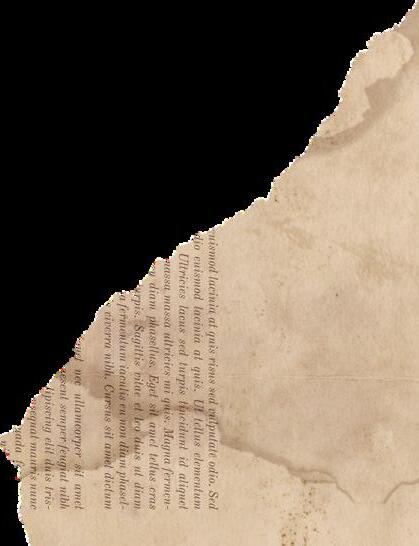 euismod lacinia at quis risus sed vulputate odio. Sed
odio euismod lacinia at quis. Ut tellus elementum
Ultricies lacus sed turpis tincidunt id aliquet
massa massa ultricies mi quis. Magna fermen-
diam phasellus. Eget sit amet tellus cras
turpis. Sagittis vitae et leo duis ut diam.
a fermentum iaculis eu non diam phasel-
viverra nibh. Cursus sit amet dictum
nec ullamcorper sit amet
semper feugiat nibh
adipiscing elit duis tris-
mauris nunc